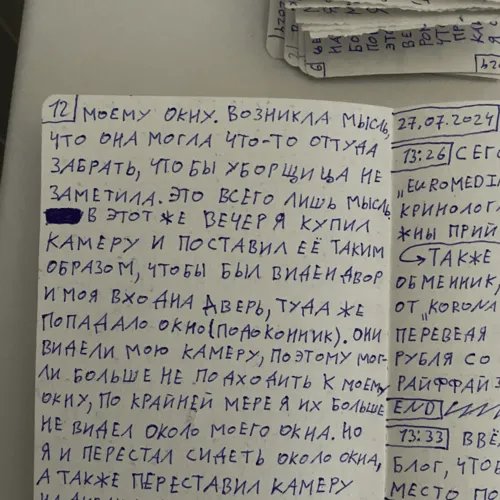 12 МОЕМУ ОКНУ. ВОЗНИКЛА МЫСЛЬ,
ЧТО ОНА МОГЛА ЧТО-ТО ОТТУДА
ЗАБРАТЬ, ЧТОБЫ УБОРЩИЦА НЕ
ЗАМЕТИЛА. ЭТО ВСЕГО ЛИШЬ МЫСЛЬ.
В ЭТОТ ЖЕ ВЕЧЕР Я КУПИЛ
КАМЕРУ И ПОСТАВИЛ ЕЁ ТАКИМ
ОБРАЗОМ, ЧТОБЫ БЫЛ ВИДЕН ДВОР
И МОЯ ВХОДНА ДВЕРЬ, ТУДА ЖЕ
ПОПАДАЛО ОКНО (ПОДОКОННИК). ОНИ
ВИДЕЛИ МОЮ КАМЕРУ, ПОЭТОМУ МОГ-
ЛИ БОЛЬШЕ НЕ ПОДХОДИТЬ К МОЕМУ
ОКНУ, ПО КРАЙНЕЙ МЕРЕ Я ИХ БОЛЬШЕ
НЕ ВИДЕЛ ОКОЛО МОЕГО ОКНА. НО
Я И ПЕРЕСТАЛ СИДЕТЬ ОКОЛО ОКНА,
А ТАКЖЕ ПЕРЕСТАВИЛ КАМЕРУ
27.07.2024
13:26 СЕГО
"EUROMEDI
КРИНОЛОГ
ЖНЫ ПРИЙ
ТАКЖЕ
ОБМЕННИК,
ОТ "KORONA
ПЕРЕВЕДЯ
РУБЛЯ СО
РАЙФФАЙЗ
END
13:33 ВВЁ
БЛОГ, ЧТОБ
МЕСТО ПО